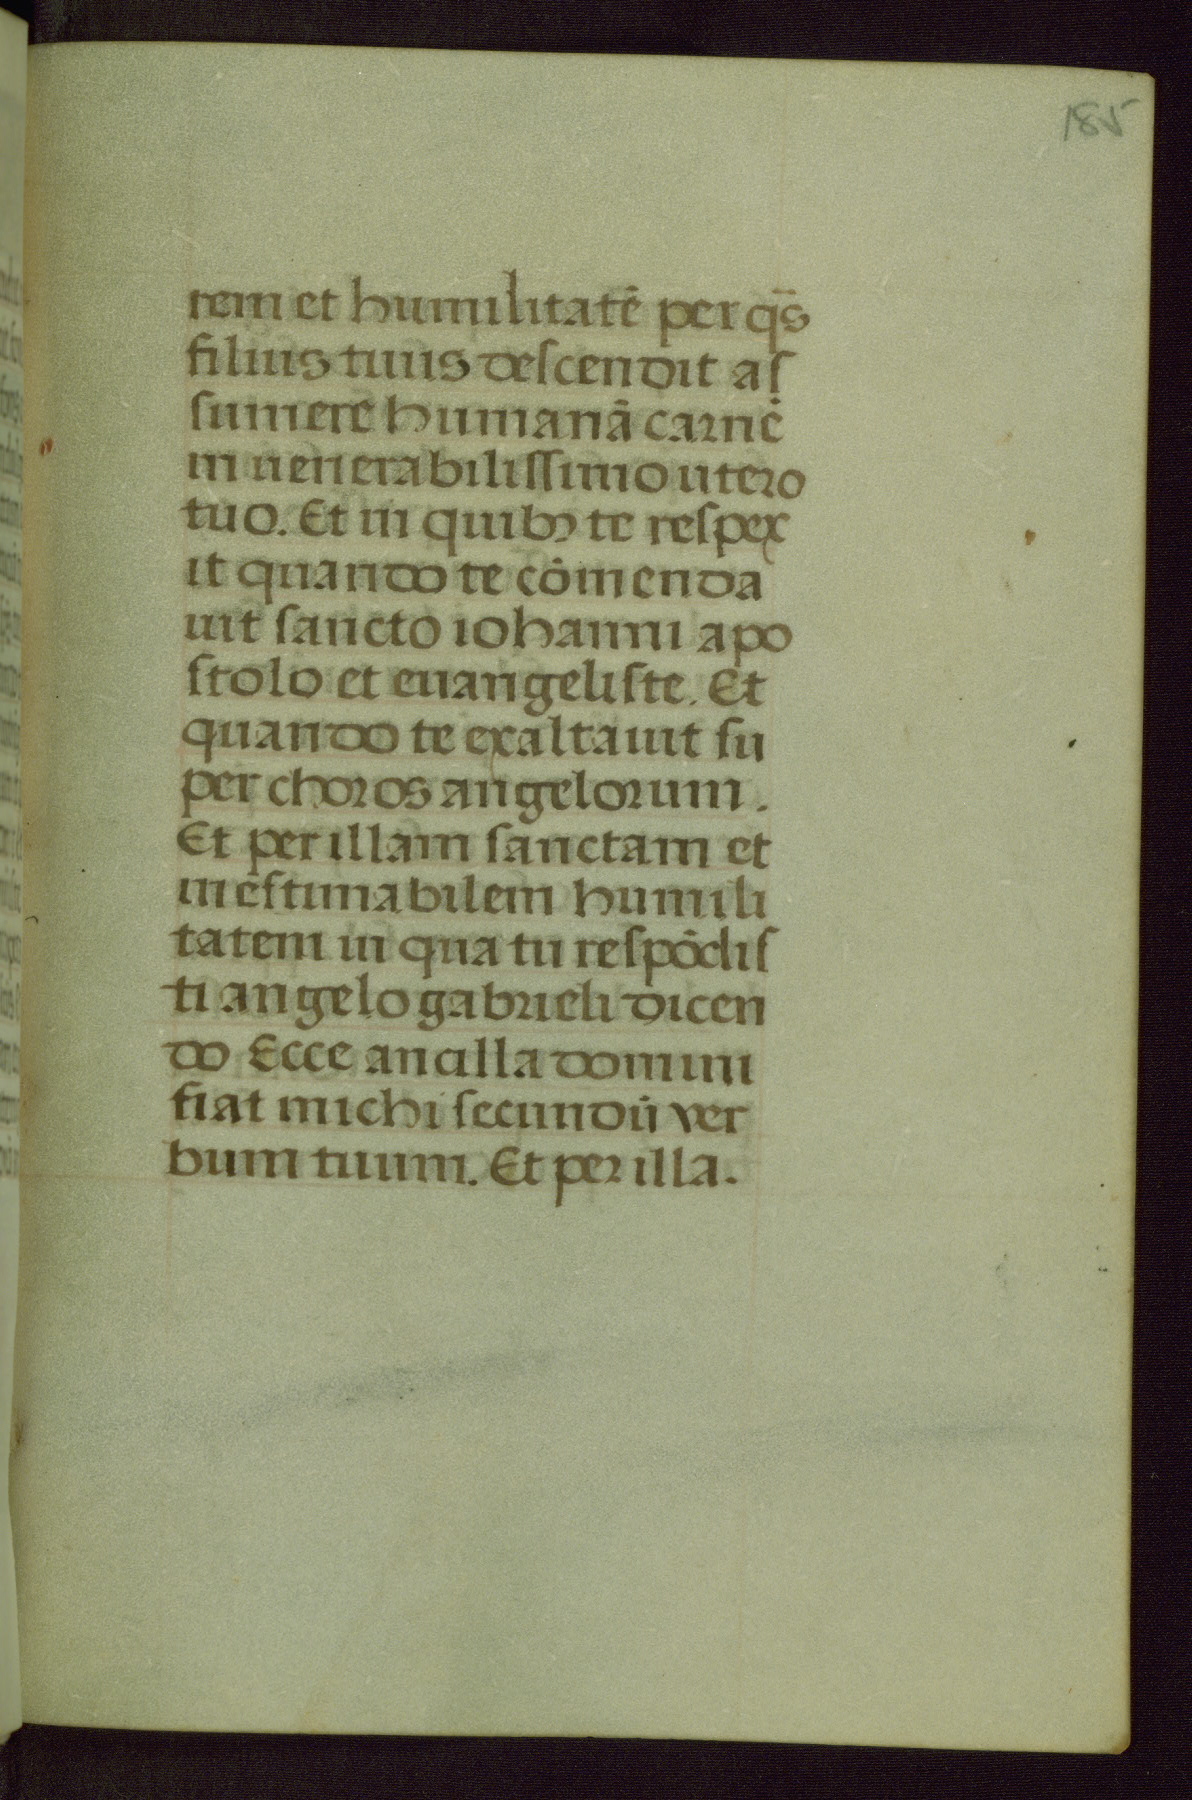 185
rem et humilitatē per qs̄
filius tuus descendit as
sumere humanā carnē
in uenerabilissimo utero
tuo. Et in quibꝫ te respex
it quando te cōmenda
uit sancto iohanni apo
stolo et euangeliste. Et
quando te exaltauit su
per choros angelorum.
Et per illam sanctam et
inestimabilem humili
tatem in qua tu respōdis
ti angelo gabrieli dicen
do Ecce ancilla domini
fiat michi secundū ver
bum tuum. Et per illa.